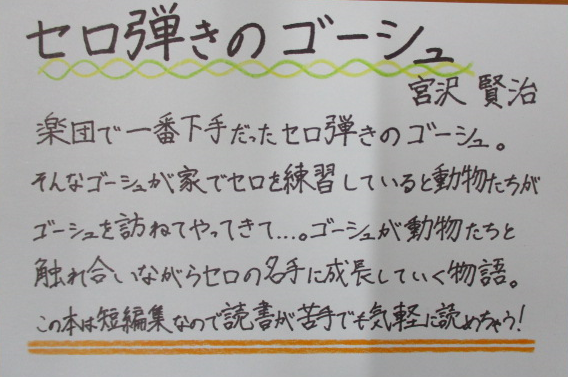 セロ弾きのゴーシュ
宮沢 賢治
楽団で一番下手だったセロ弾きのゴーシュ。
そんなゴーシュが家でセロを練習していると動物たちが
ゴーシュを訪ねてやってきて…。ゴーシュが動物たちと
触れ合いながらセロの名手に成長していく物語。
この本は短編集なので読書が苦手でも気軽に読めちゃう!